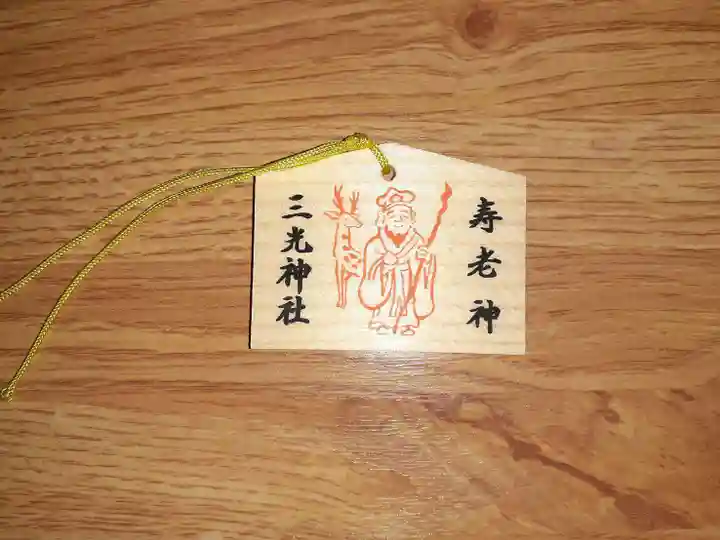 寿老神
三光神社